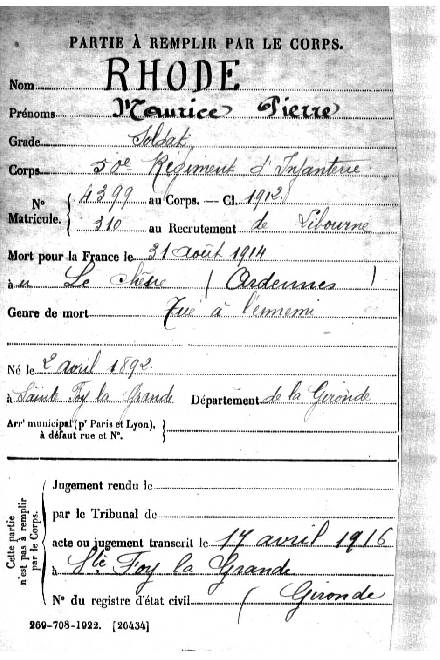 PARTIE À REMPLIR PAR LE CORPS.
Nom RHODE
Prénoms Maurice Pierre
Grade Soldat
Corps 50e Régiment d'Infanterie
N° Matricule. { 4399 au Corps. — Cl. 1912
310 au Recrutement de Libourne
Mort pour la France le 31 août 1914
à Le Chêne (Ardennes)
Genre de mort Tué à l'ennemi
Né le 2 avril 1892
à Sainte Foy la Grande Département de la Gironde
Arrt municipal (pr Paris et Lyon), à défaut rue et N°.
Cette partie n'est pas à remplir par le Corps.
Jugement rendu le
par le Tribunal de
acte ou jugement transcrit le 17 avril 1916
à Ste Foy la Grande
N° du registre d'état civil ( Gironde
269-708-1922. [26434]